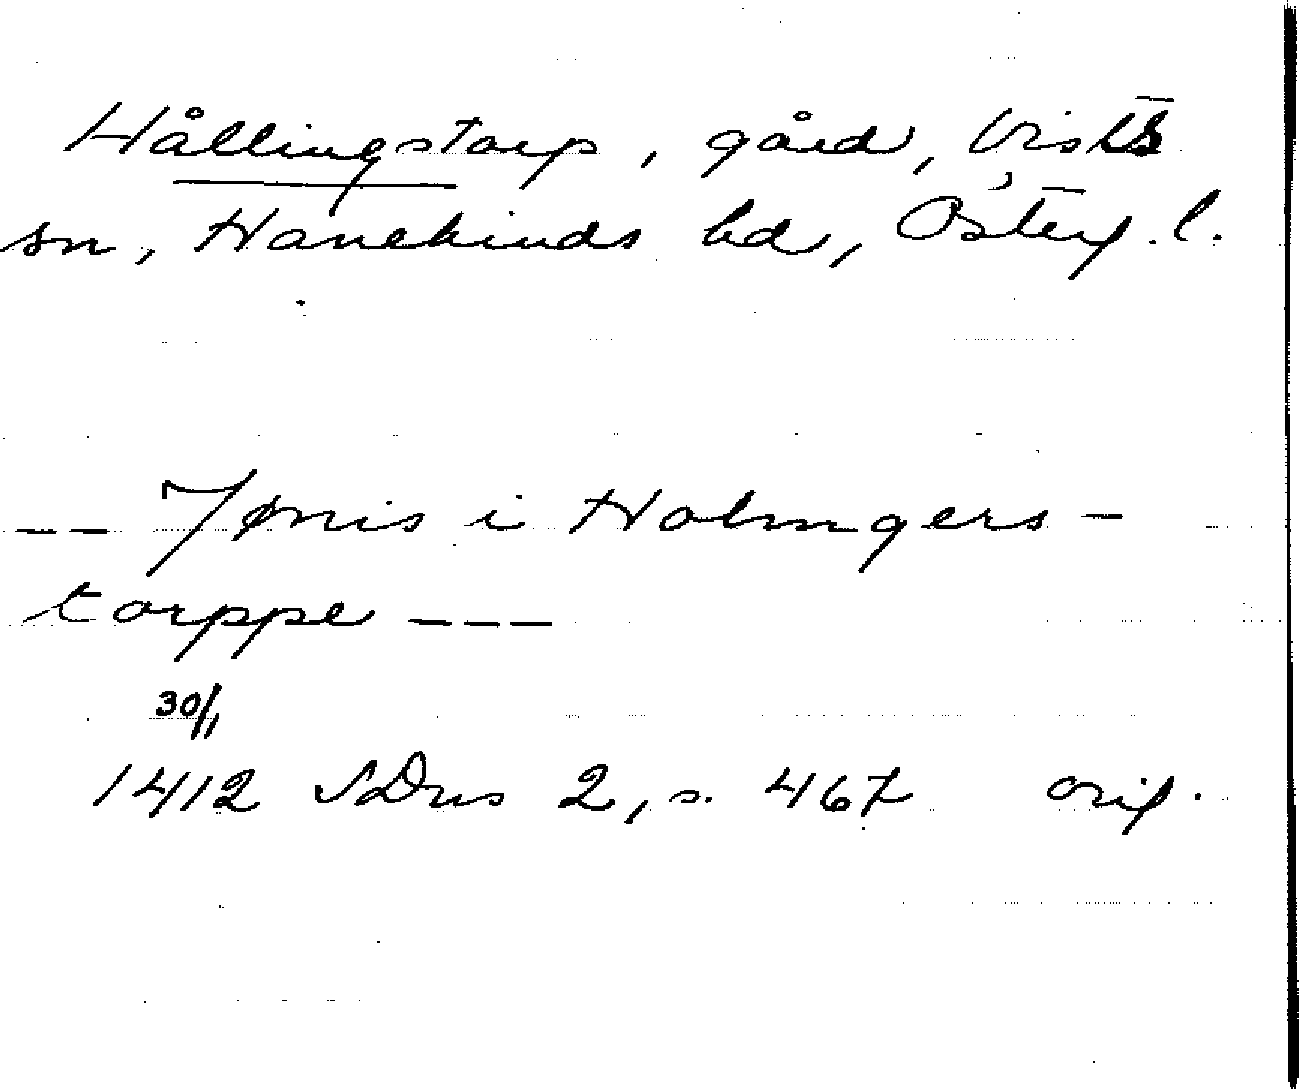 Hållingstorp, gård, Vists
sn, Hanekinds hd, Österg. l.
--- Jønis i Holmgers-
torppe ---
30/1
1412 SDns 2, s. 467 orig.